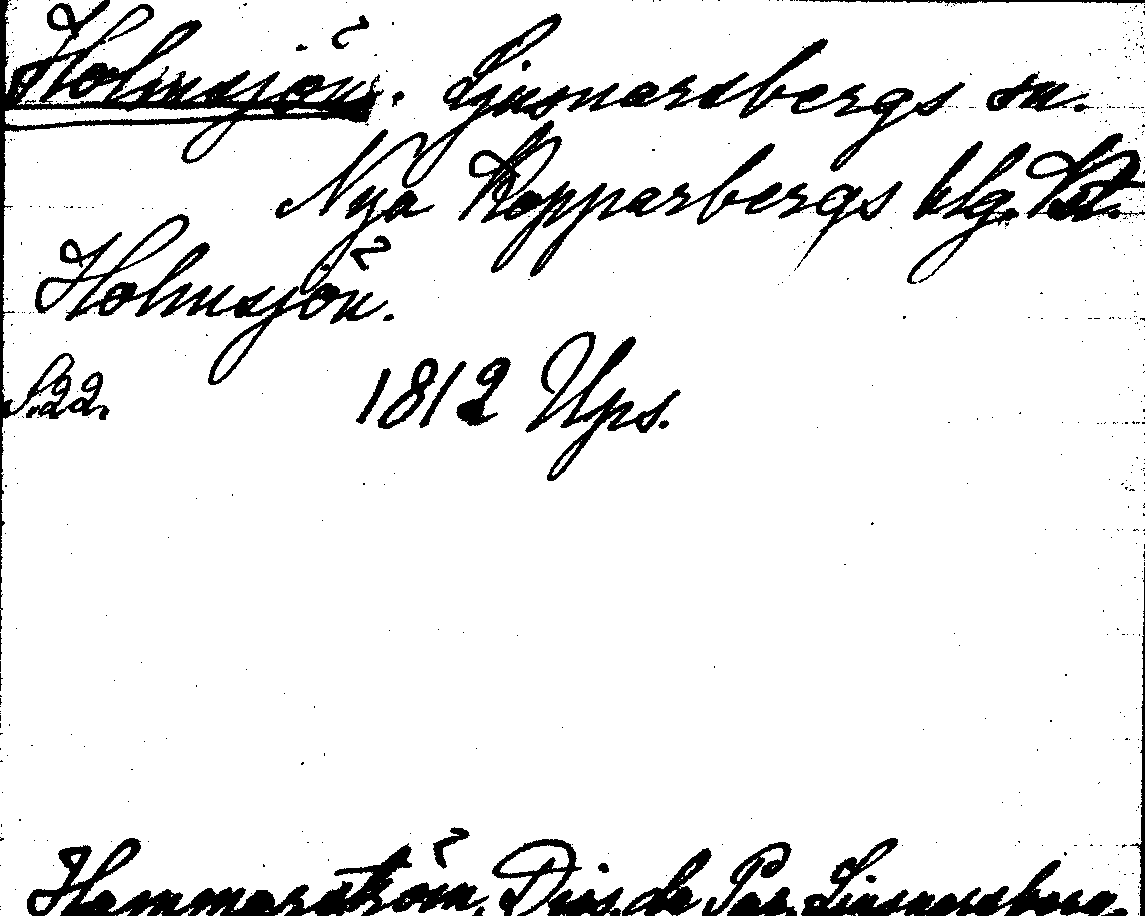 Holmsjön. Ljusnarsbergs sn.
Nya Kopparbergs blg.
Holmsjön.
S.22. 1812 Ups.
Hammarström, Diss. de Par. Ljusnarsberg.